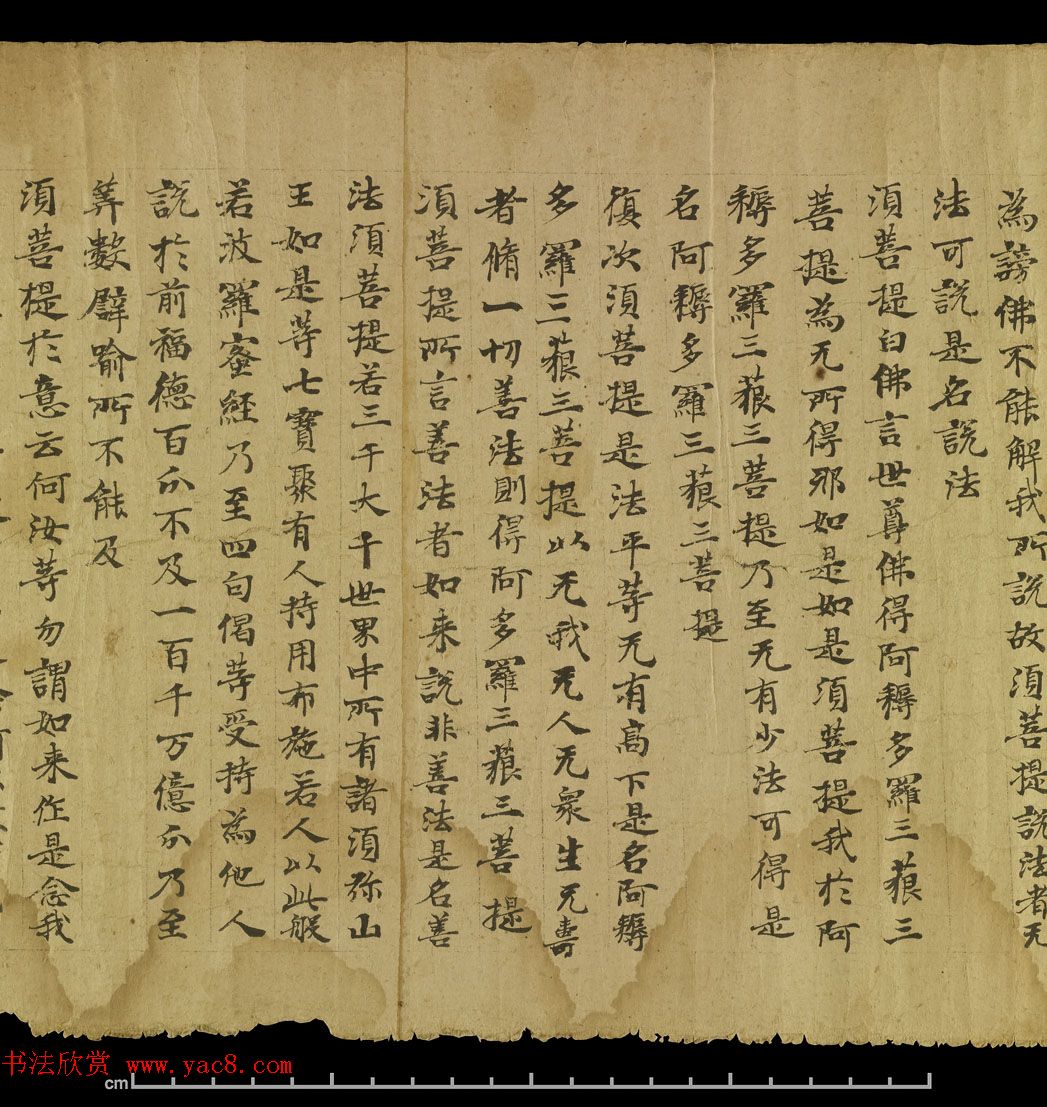 為謗佛不能解我所說故須菩提說法者无
法可說是名說法
須菩提白佛言世尊佛得阿耨多羅三藐三
菩提為无所得邪如是如是須菩提我於阿
耨多羅三藐三菩提乃至无有少法可得是
名阿耨多羅三藐三菩提
復次須菩提是法平等无有高下是名阿耨
多羅三藐三菩提以无我无人无衆生无壽
者脩一切善法則得阿多羅三藐三菩提
須菩提所言善法者如来說非善法是名善
法須菩提若三千大千世界中所有諸須弥山
王如是等七寶聚有人持用布施若人以此般
若波羅蜜經乃至四句偈等受持為他人
說於前福德百分不及一百千万億分乃至
筭數譬喻所不能及
須菩提於意云何汝等勿謂如来作是念我
书法欣赏 www.yac8.com
cm